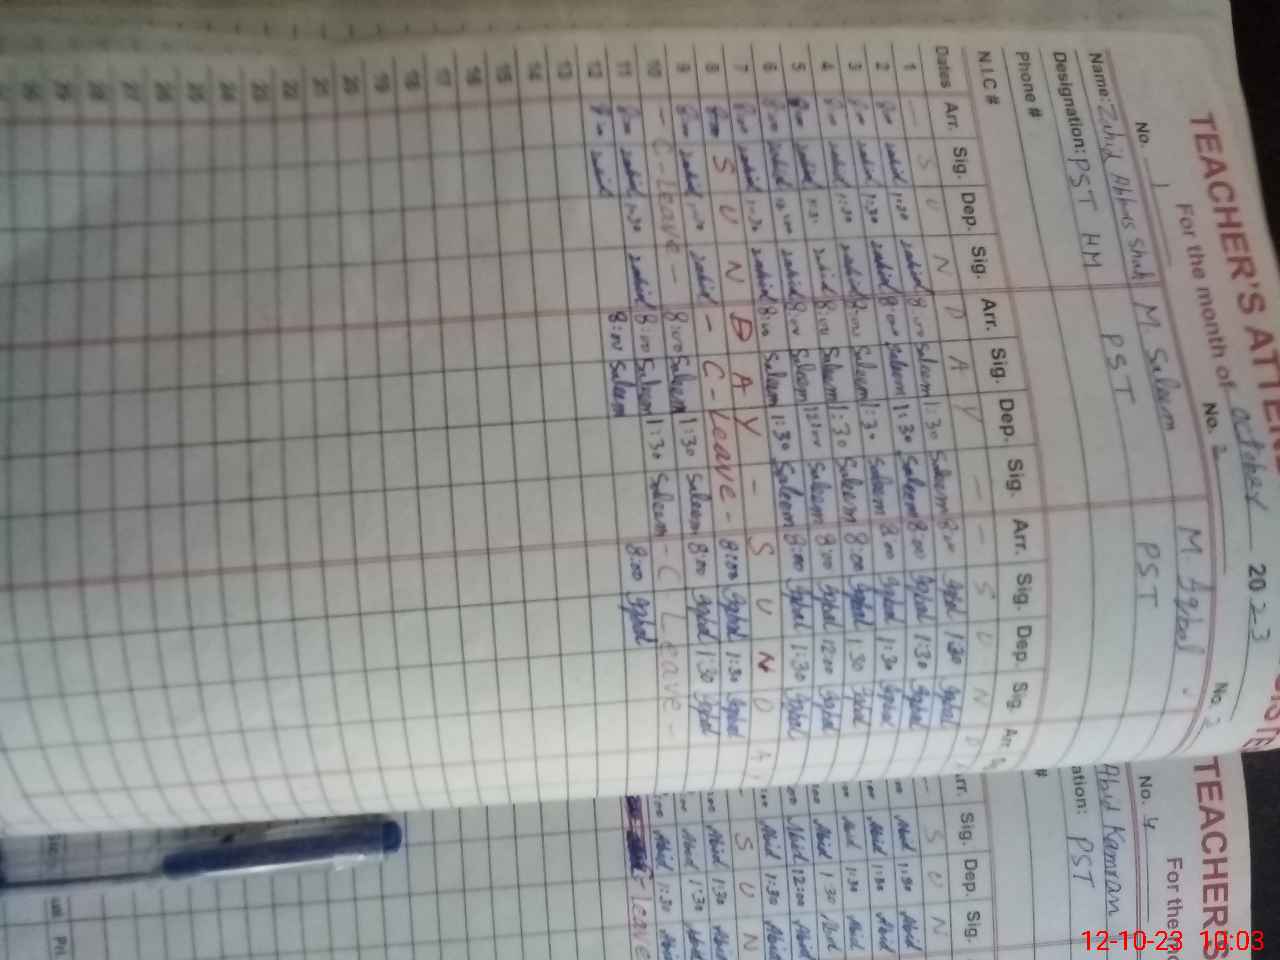 TEACHER'S ATTEN
For the month of october 2023
No. 1 No. 2 No. 3
Name: Zahid Abbas Shah M. Saleem M. Iqbal
Designation: PST HM PST PST
Phone #
N.I.C #
Dates Arr. Sig. Dep. Sig. Arr. Sig. Dep. Sig. Arr. Sig. Dep Sig. Arr
1 - S U N D A Y - - S U N D
2 8:00 zahid 1:30 zahid 8:00 Saleem 1:30 Saleem 8:00 Iqbal 1:30 Iqbal
3 8:00 zahid 1:30 zahid 8:00 Saleem 1:30 Saleem 8:00 Iqbal 1:30 Iqbal
4 8:00 zahid 1:30 zahid 8:00 Saleem 1:30 Saleem 8:00 Iqbal 1:30 Iqbal
5 8:00 zahid 1:30 zahid 8:00 Saleem 1:30 Saleem 8:00 Iqbal 1:30 Iqbal
6 8:00 zahid 12:00 zahid 8:00 Saleem 12:00 Saleem 8:00 Iqbal 12:00 Iqbal
7 8:00 zahid 1:30 zahid 8:00 Saleem 1:30 Saleem 8:00 Iqbal 1:30 Iqbal
8 S U N D A Y - S U N D A
9 8:00 zahid 1:30 zahid - C-Leave - 8:00 Iqbal 1:30 Iqbal
10 - C-Leave - 8:00 Saleem 1:30 Saleem 8:00 Iqbal 1:30 Iqbal
11 8:00 zahid 1:30 zahid 8:00 Saleem 1:30 Saleem - C Leave -
12 8:00 zahid 8:00 Saleem 8:00 Iqbal
13
14
15
16
17
18
19
20
21
22
23
24
25
26
27
28
29
30
TEACHER'S
For the mo
No. 4
Abid Kamran
ation: PST
#
rr. Sig. Dep. Sig.
- S U N
:00 Abid 1:30 Abid
:00 Abid 1:30 Abid
:00 Abid 1:30 Abid
:00 Abid 1:30 Abid
:00 Abid 12:00 Abid
:00 Abid 1:30 Abid
- S U N
:00 Abid 1:30 Abid
:00 Abid 1:30 Abid
:00 Abid 1:30 Abid
Leave
12-10-23 10:03